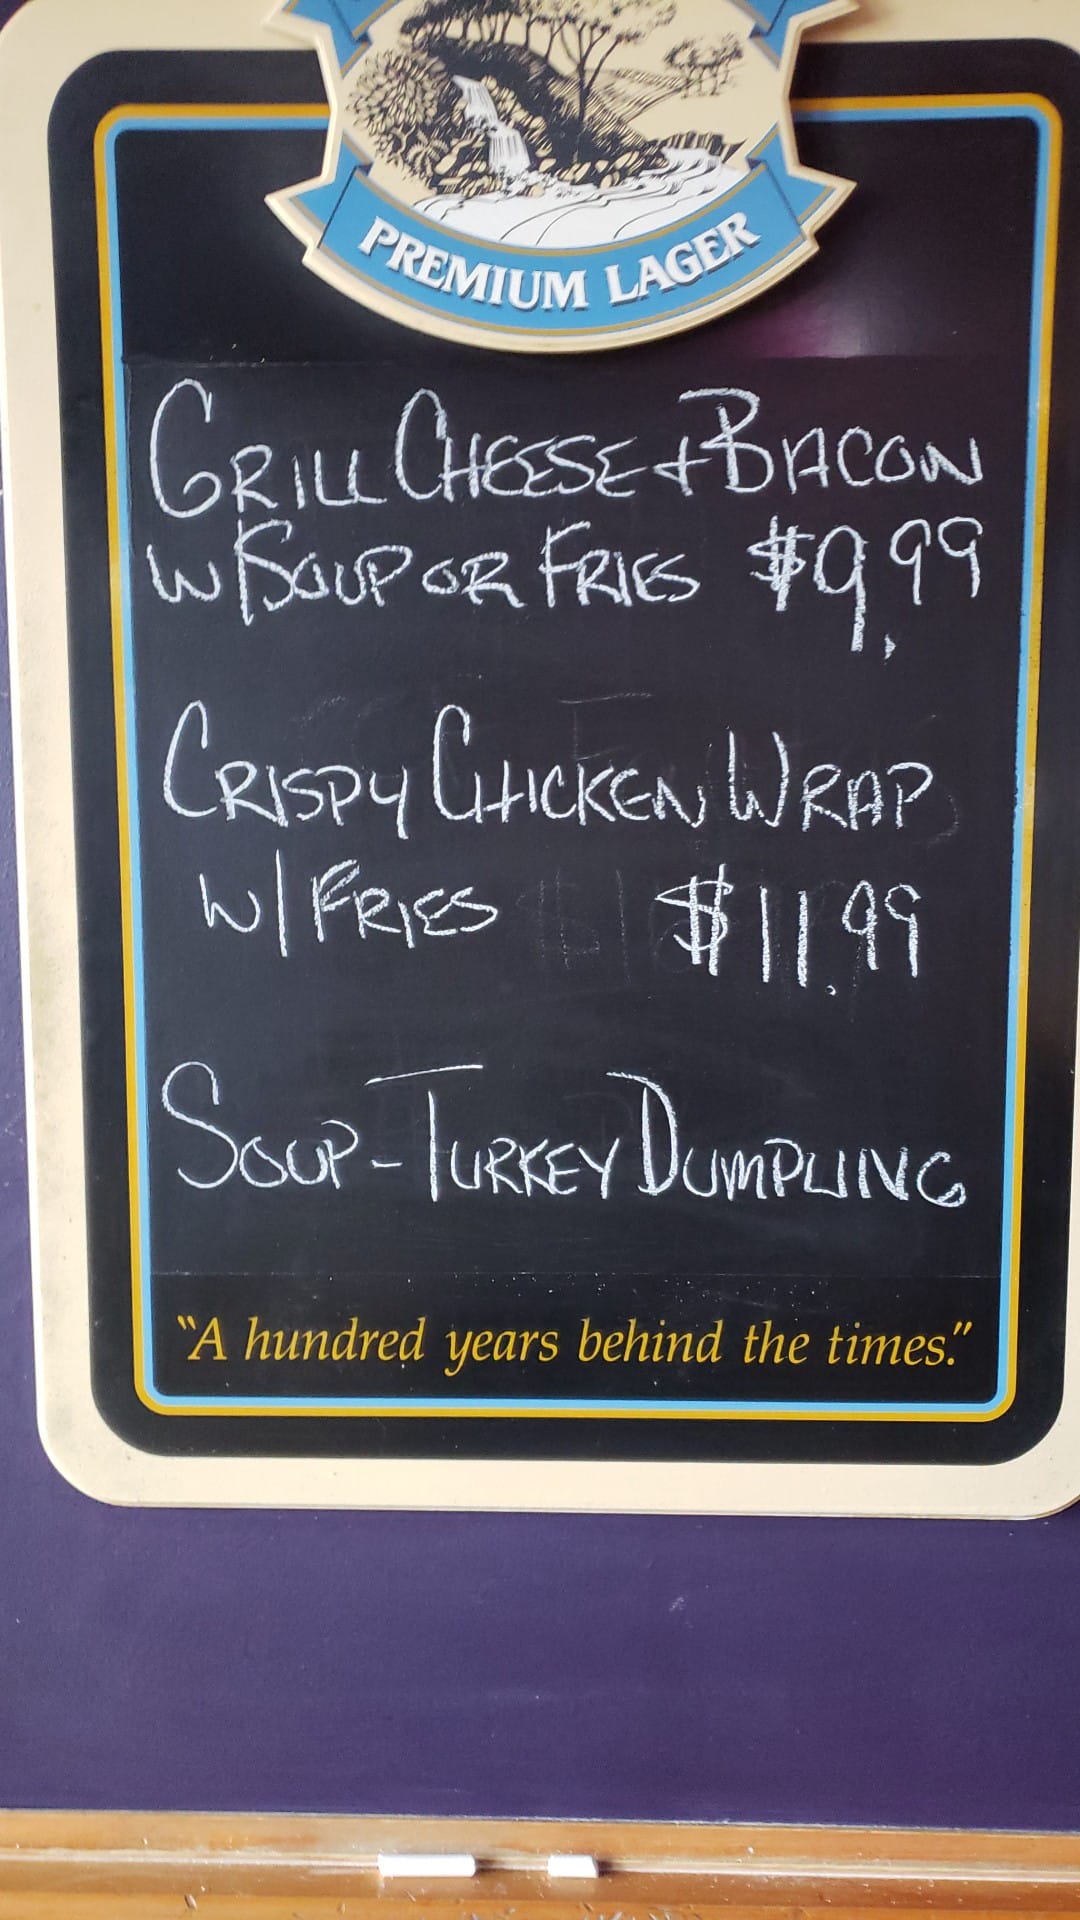 PREMIUM LAGER
GRILL CHEESE + BACON
W/SOUP OR FRIES $9.99
CRISPY CHICKEN WRAP
W/ FRIES $11.99
SOUP - TURKEY DUMPLING
"A hundred years behind the times."